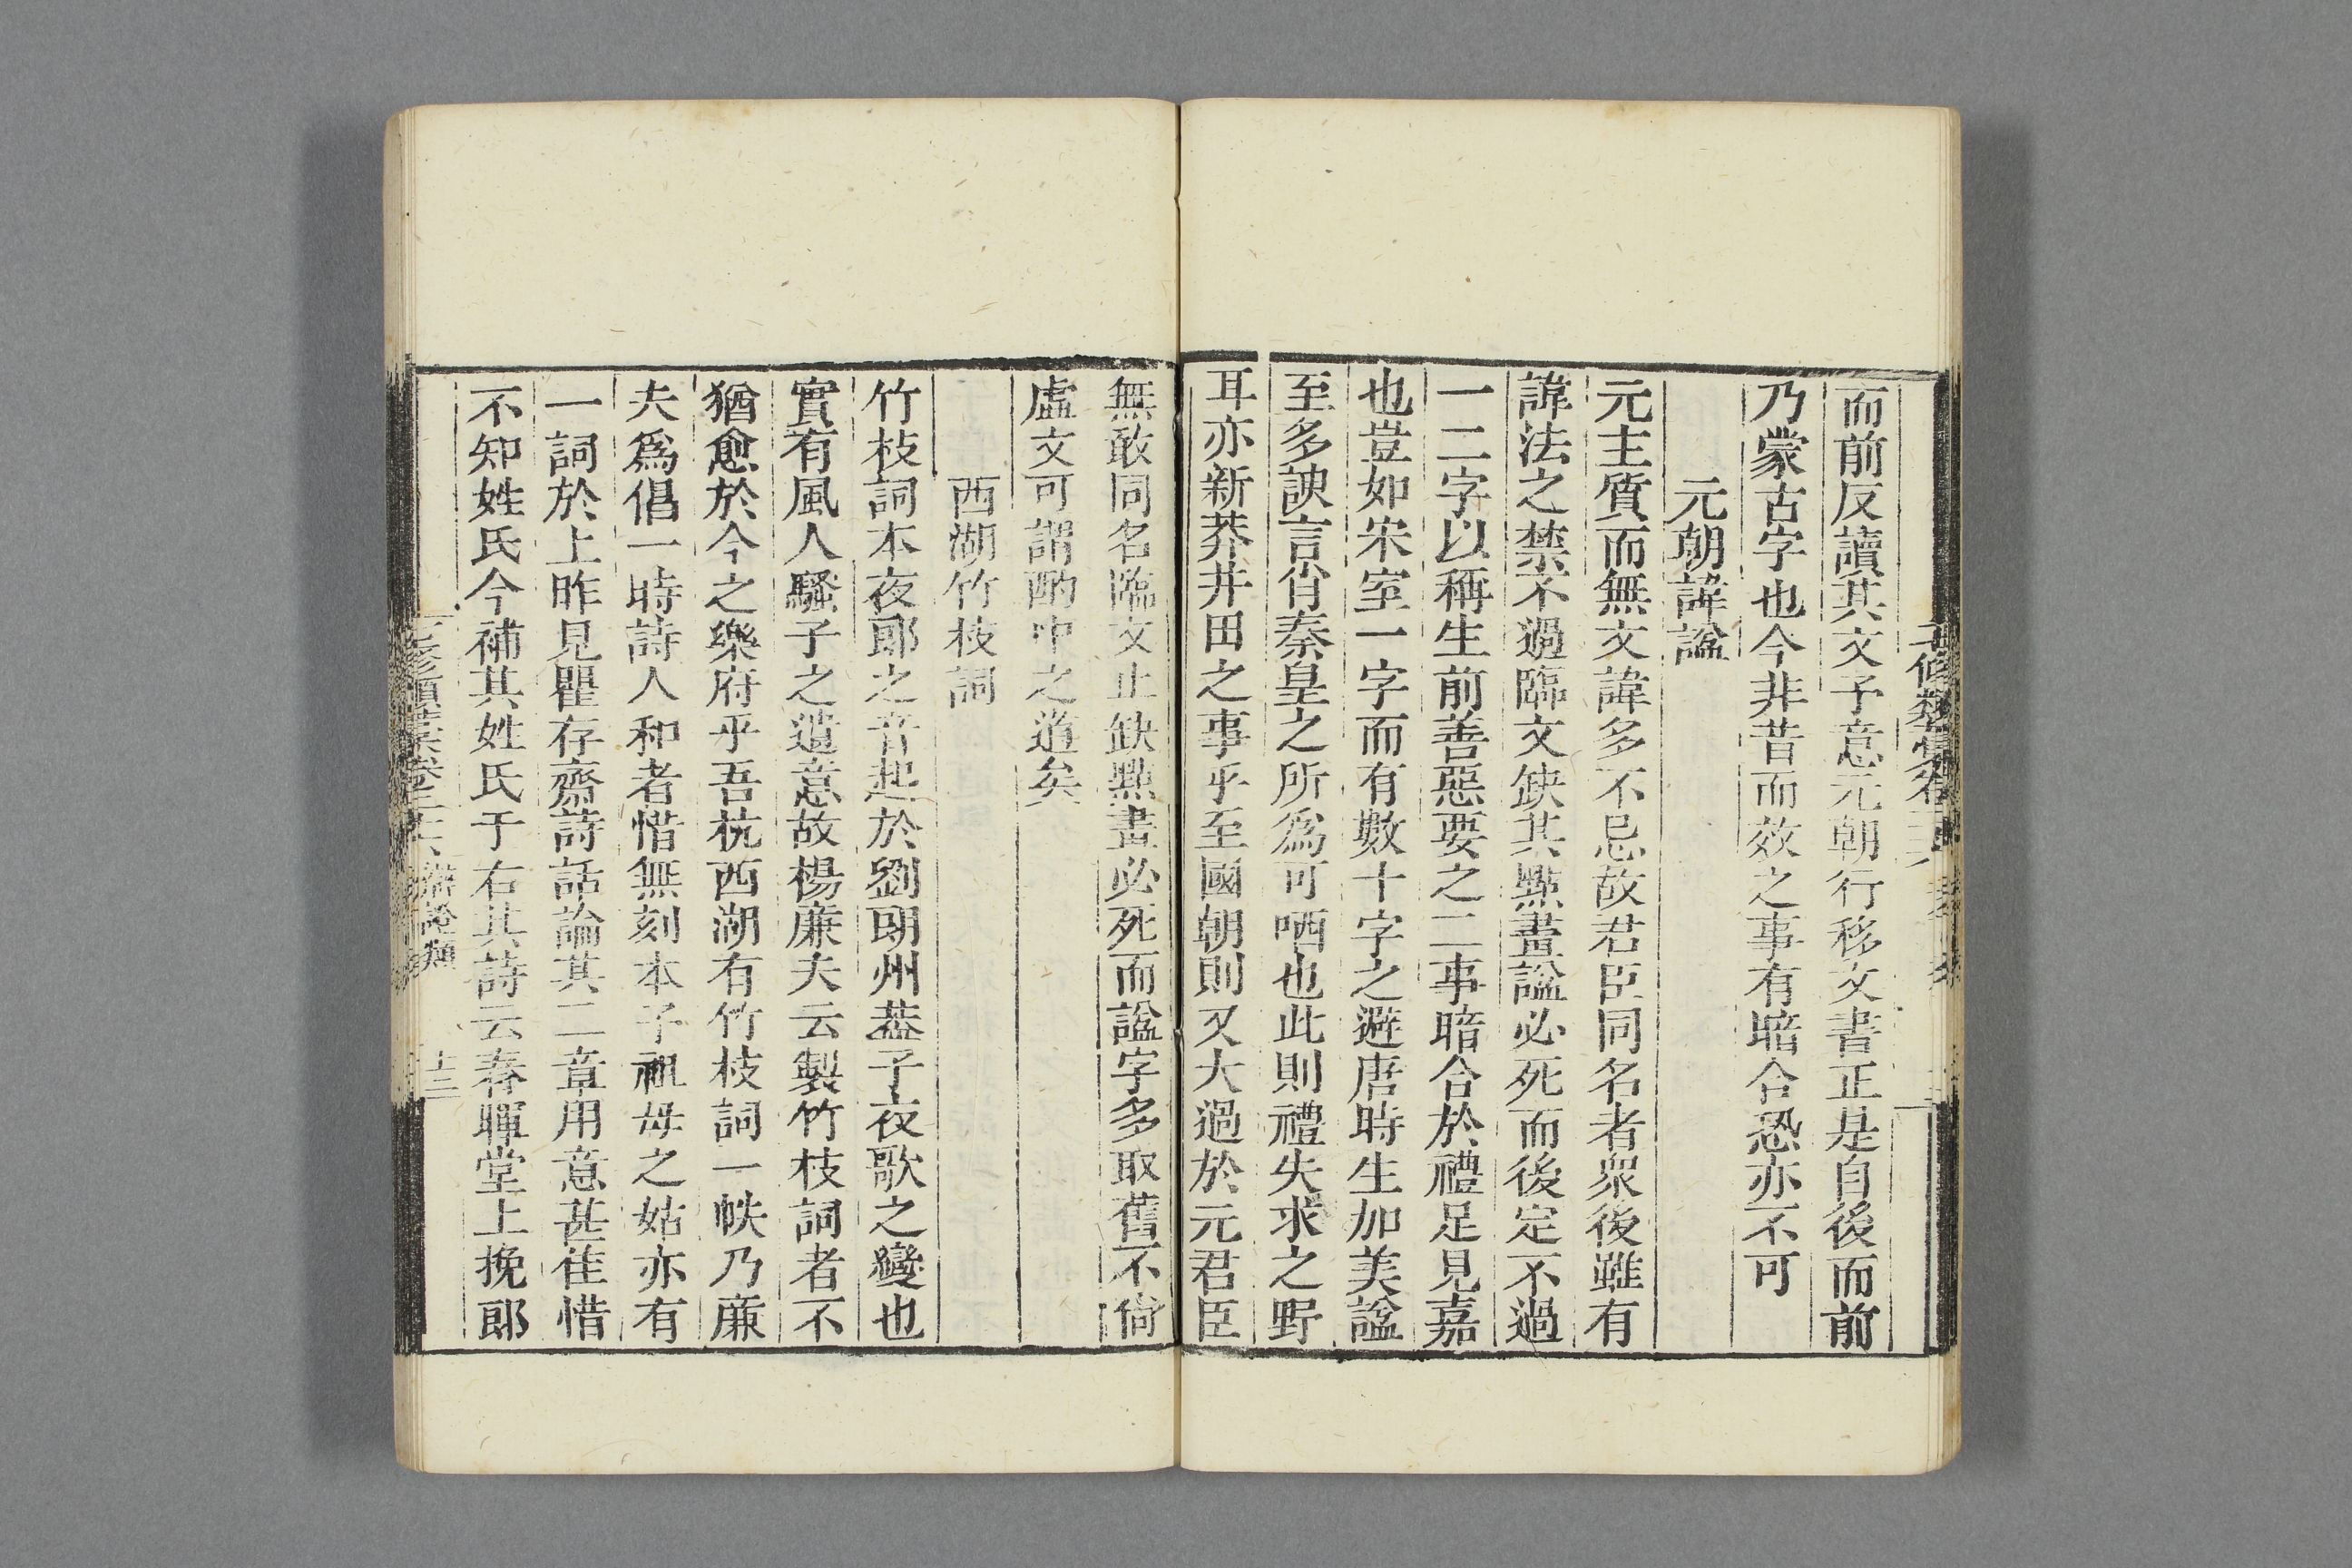 而前反讀其文予意元朝行移文書正是自後而前
乃蒙古字也今非昔而效之事有暗合恐亦不可
元朝諱謚
元主質而無文諱多不忌故君臣同名者衆後雖有
諱法之禁不過臨文缺其點畫謚必死而後定不過
一二字以稱生前善惡要之二事暗合於禮足見嘉
也豈如宋室一字而有數十字之避唐時生加美謚
至多諛言肖秦皇之所爲可哂也此則禮失求之野
耳亦新莽井田之事乎至國朝則又大過於元君臣
無敢同名臨文止缺點畫必死而謚字多取舊不尙
虛文可謂酌中之道矣
西湖竹枝詞
竹枝詞本夜郎之音起於劉朗州葢子夜歌之變也
實有風人騷子之遺意故楊廉夫云製竹枝詞者不
猶愈於今之樂府乎吾杭西湖有竹枝詞一帙乃廉
夫爲倡一時詩人和者惜無刻本子祖母之姑亦有
一詞於上昨見瞿存齋詩話論其二章用意甚佳惜
不知姓氏今補其姓氏于右其詩云春暉堂上挽郎